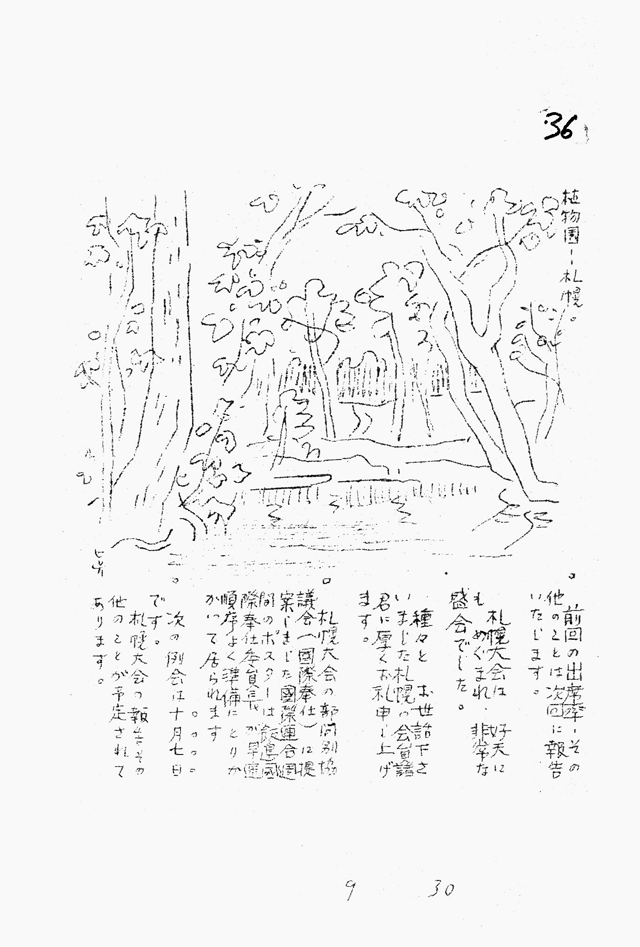 36
植物園ー札幌。
。前回の出席率ーその
他のことは次回に報告
いたします。
札幌大会は 好天に
も めぐまれ 非常な
盛会でした。
種々と お世話下さ
いました札幌の会員諸
君に厚くお礼申し上げ
ます。
。札幌大会の部門別協
議会(國際奉仕)に提
案しました國際連合週
間のポスターは 飯島國
際奉仕委員長が早速
順序よく準備にとりか
かって居られます
。。。。
。次の例会は十月七日
です。
札幌大会の報告その
他のことが予定されて
あります。
9 30